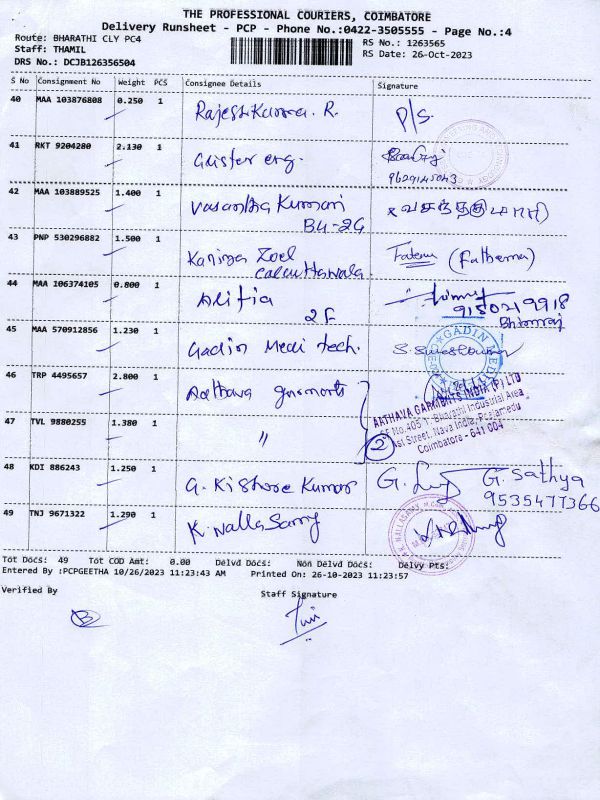 THE PROFESSIONAL COURIERS, COIMBATORE
Delivery Runsheet - PCP - Phone No.:0422-3505555 - Page No.:4
Route: BHARATHI CLY PC4
RS No.: 1263565
Staff: THAMIL
RS Date: 26-Oct-2023
DRS No.: DCJB126356504
S No Consignment No Weight PCS Consignee Details Signature
40 MAA 103876808 0.250 1 Rajeshkumar. R. P/S.
41 RKT 9204280 2.130 1 eng.
42 MAA 103889525 1.400 1 Vasantha Kumari
B4-2G
43 PNP 530296882 1.500 1 Zoel (Fathema)
Calcuttawala
44 MAA 106374105 0.800 1 Alifia
2F 9150219918
45 MAA 570912856 1.230 1 Gadin Medi tech. GADIN MEDI
46 TRP 4495657 2.800 1 Aathava garments
AATHAVA GARMENTS INDIA (P) LTD
SF No.405 1, Bharathi Industrial Area
1st Street, Nava India, Peelamedu
Coimbatore - 641 004
47 TVL 9880255 1.380 1 " 2
48 KDI 886243 1.250 1 G. Kishore Kumar G. Sathya
9535477366
49 TNJ 9671322 1.290 1 K. NallaSamy
Tot Docs: 49 Tot COD Amt: 0.00 Delvd Docs: Non Delvd Docs: Delvy Pts:
Entered By :PCPGEETHA 10/26/2023 11:23:43 AM Printed On: 26-10-2023 11:23:57
Verified By Staff Signature